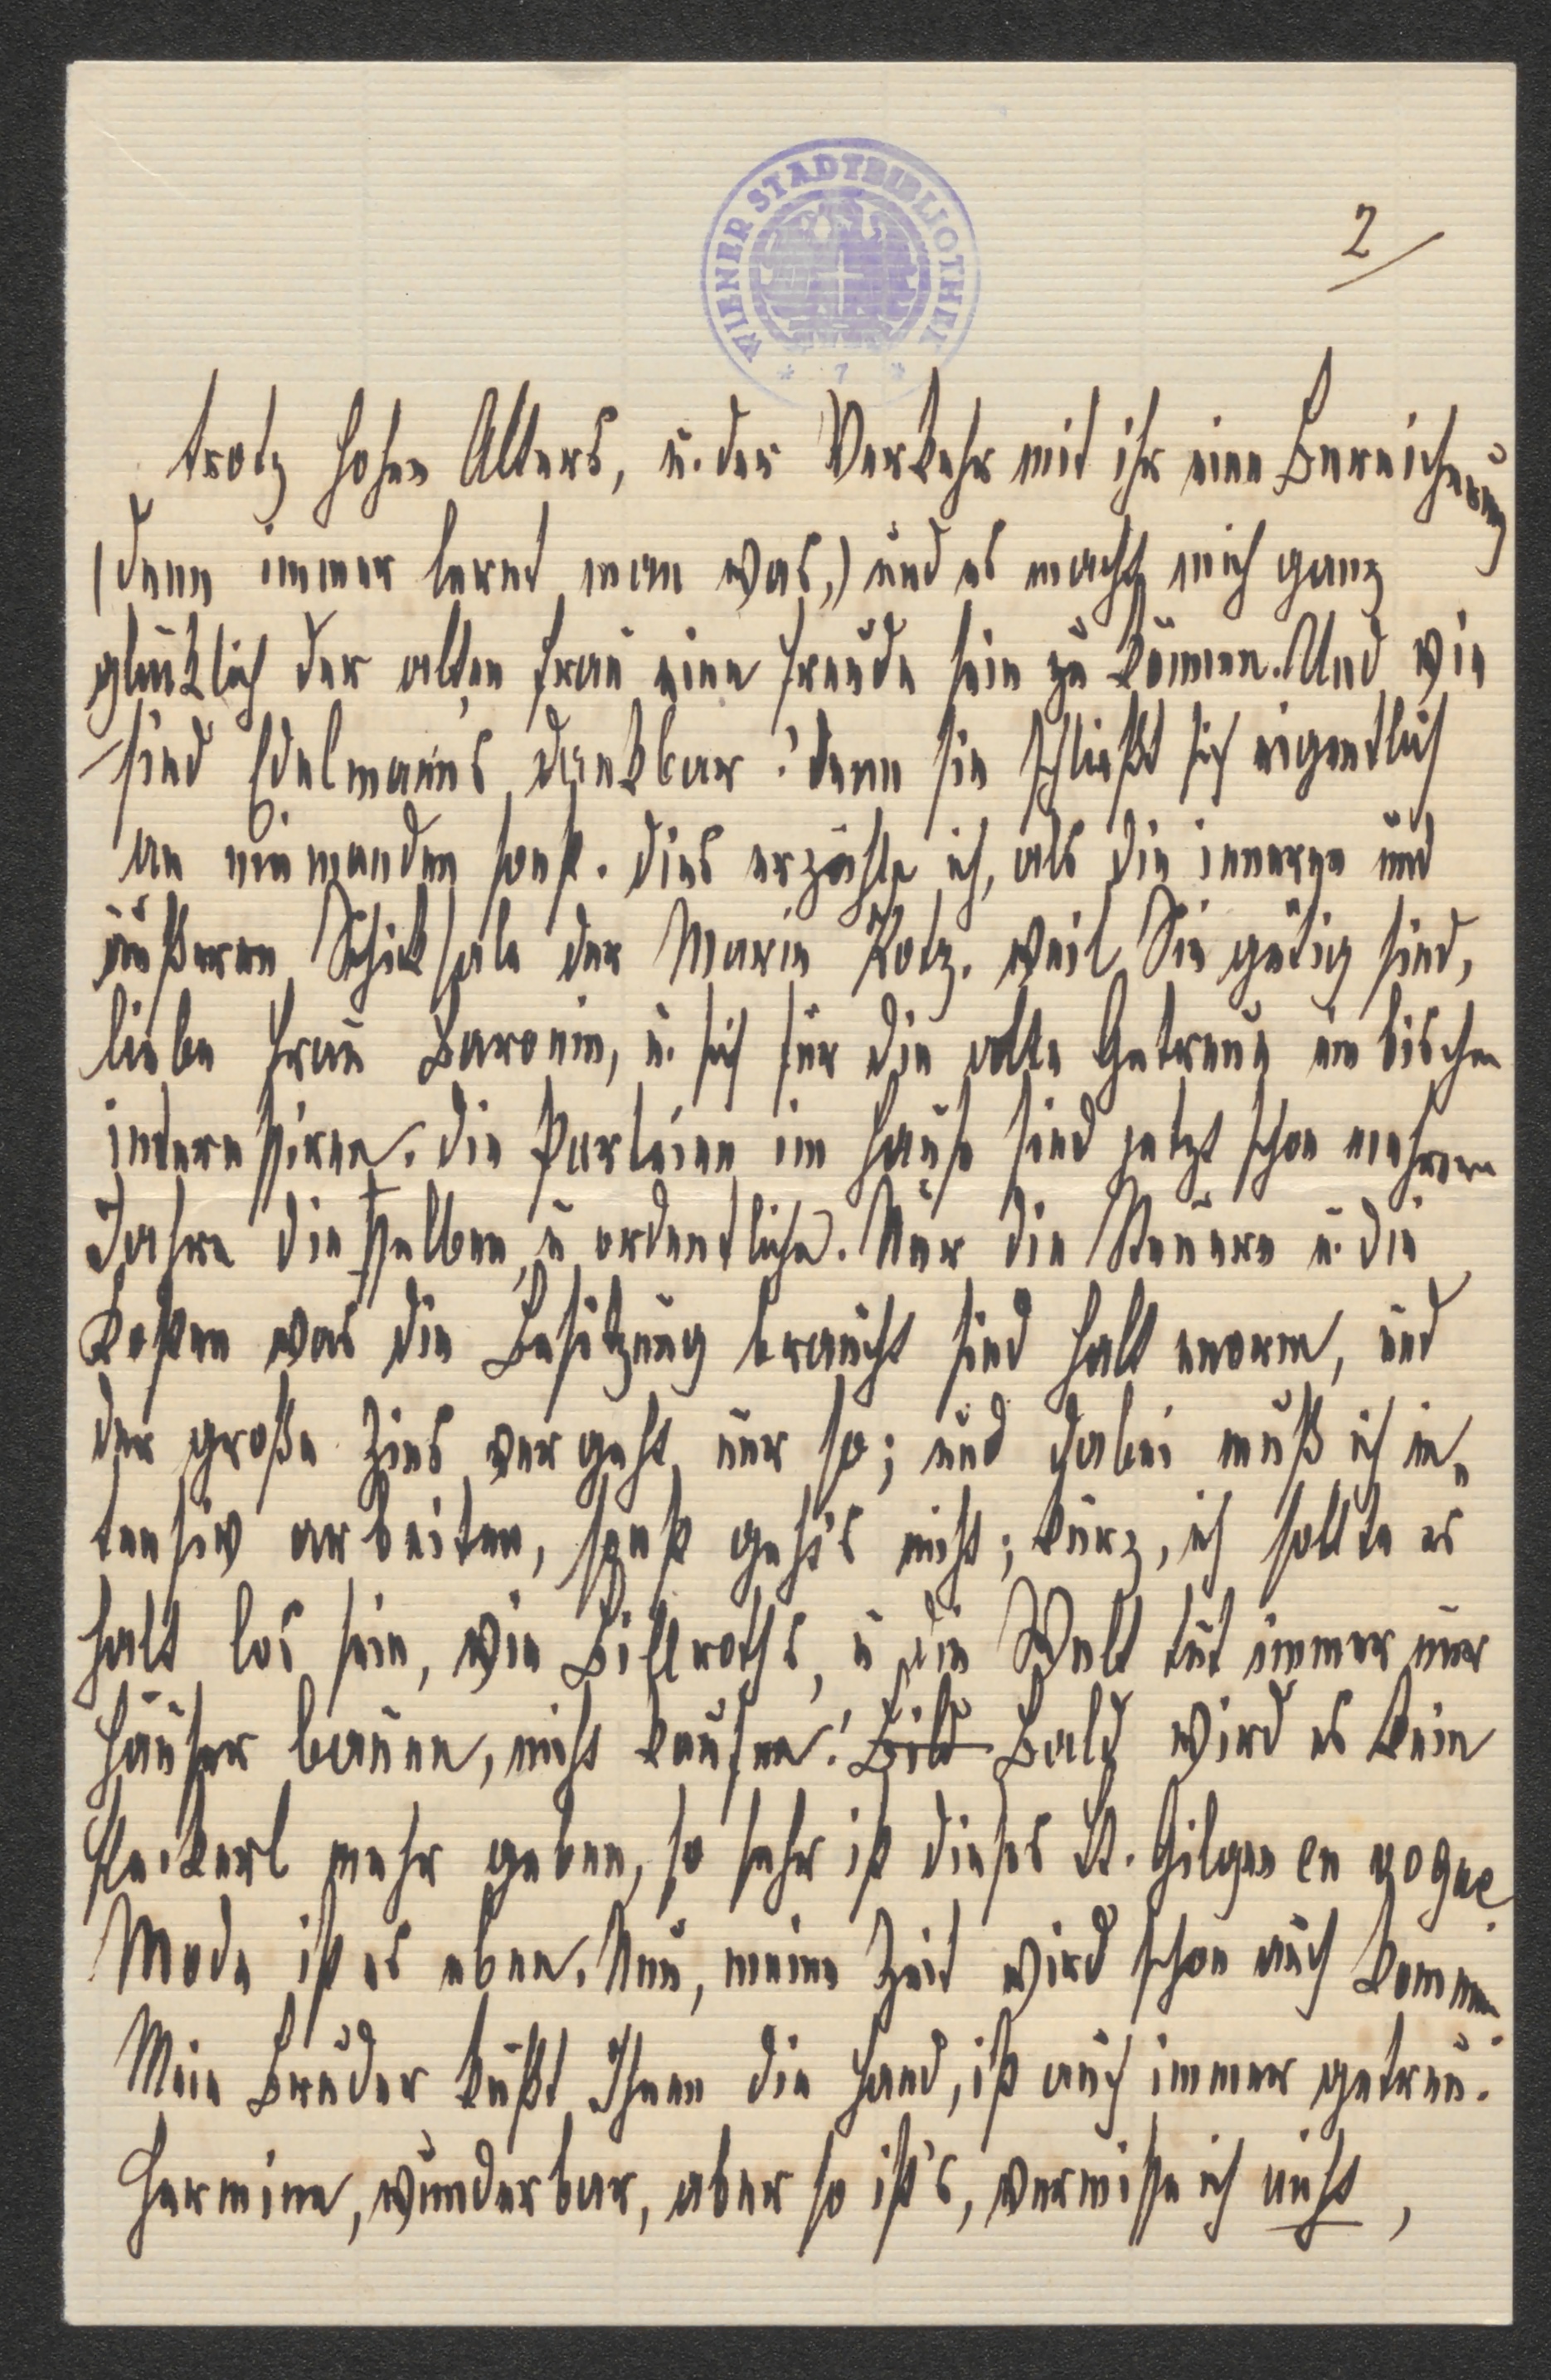 WIENER STADTBIBLIOTHEK
* 7 *
2/
trotz hohen Alters, u. der Verkehr mit ihr eine Bereicherung
(denn immer lernt man was,) und es macht mich ganz
glücklich der alten Frau eine Freude sein zu können. Und wie
sind Edelmann's dankbar! denn sie schließt sich eigentlich
an niemanden sonst. Dies erzähle ich, als die inneren und
äußeren Schicksale der Marie Kotz. weil Sie gütig sind,
liebe Frau Baronin, u. sich für die alte Getreue ein bischen
interessiren. Die Parteien im Hause sind jetzt schon mehrere
Jahre dieselben, u ordentliche. Nur die Steuern u. die
Kosten was die Besitzung braucht sind halt enorm, und
der große Zins vergeht nur so; und dabei muß ich in-
tensiv arbeiten, sonst geht's nicht; kurz, ich sollte es
halt los sein, wie Billroth's, u die Welt tut immer nur
Häuser bauen, nicht kaufen! Bild Bald wird es kein
Fleckerl mehr geben, so sehr ist dieses St. Gilgen en vogue.
Mode ist es eben. Nun, meine Zeit wird schon auch kommen.
Mein Bruder küßt Ihnen die Hand, ist auch immer getreu.
Hermine, wunderbar, aber so ist's, vermisse ich nicht,